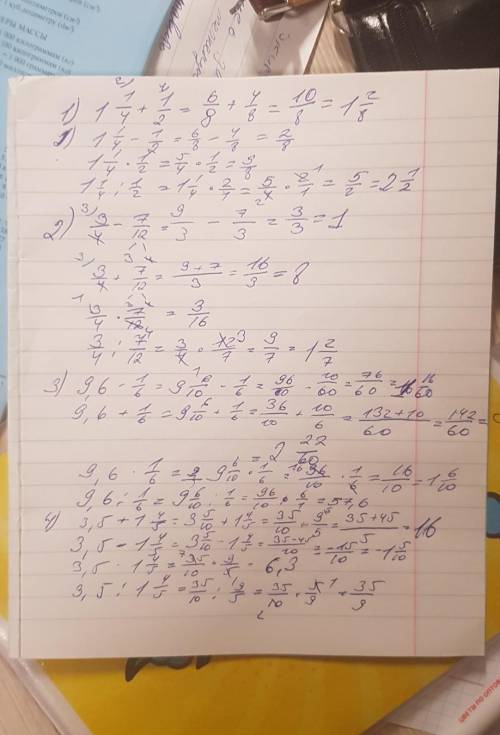 1) 1 1/4 + 1/2 = 6/8 + 4/8 = 10/8 = 1 2/8
1 1/4 - 1/2 = 6/8 - 4/8 = 2/8
1 1/4 · 1/2 = 5/4 · 1/2 = 5/8
1 1/4 : 1/2 = 1 1/4 · 2/1 = 5/4 · 2/1 = 5/2 = 2 1/2
2) 3/4 - 7/12 = 9/3 - 7/3 = 3/3 = 1
3/4 + 7/12 = 9+7/3 = 16/3 = 8
3/4 · 7/12 = 3/16
3/4 : 7/12 = 3/4 · 12/7 = 9/7 = 1 2/7
3) 9,6 - 1/6 = 9 6/10 - 1/6 = 96/10 - 10/60 = 76/60 = 16/60
9,6 + 1/6 = 9 6/10 + 1/6 = 36/10 + 10/6 = 132+10/60 = 142/60 =
= 2 22/60
9,6 · 1/6 = 9 6/10 · 1/6 = 96/10 · 1/6 = 16/10 = 1 6/10
9,6 : 1/6 = 9 6/10 : 1/6 = 96/10 · 6/1 = 57,6
4) 3,5 + 1 4/5 = 3 5/10 + 1 4/5 = 35/10 + 9/5 = 35+45/5 = 16
3,5 - 1 4/5 = 3 5/10 - 1 4/5 = 35-45/10 = -15/10 = -1 5/10
3,5 · 1 4/5 = 35/10 · 9/5 = 6,3
3,5 : 1 4/5 = 35/10 : 9/5 = 35/10 · 5/9 = 35/9
ЕРЫ МАССЫ
цветы по оптов